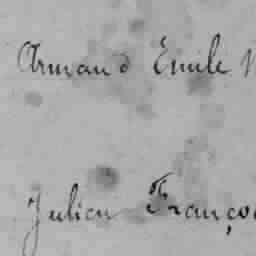 Armand Emile
Julien Franço